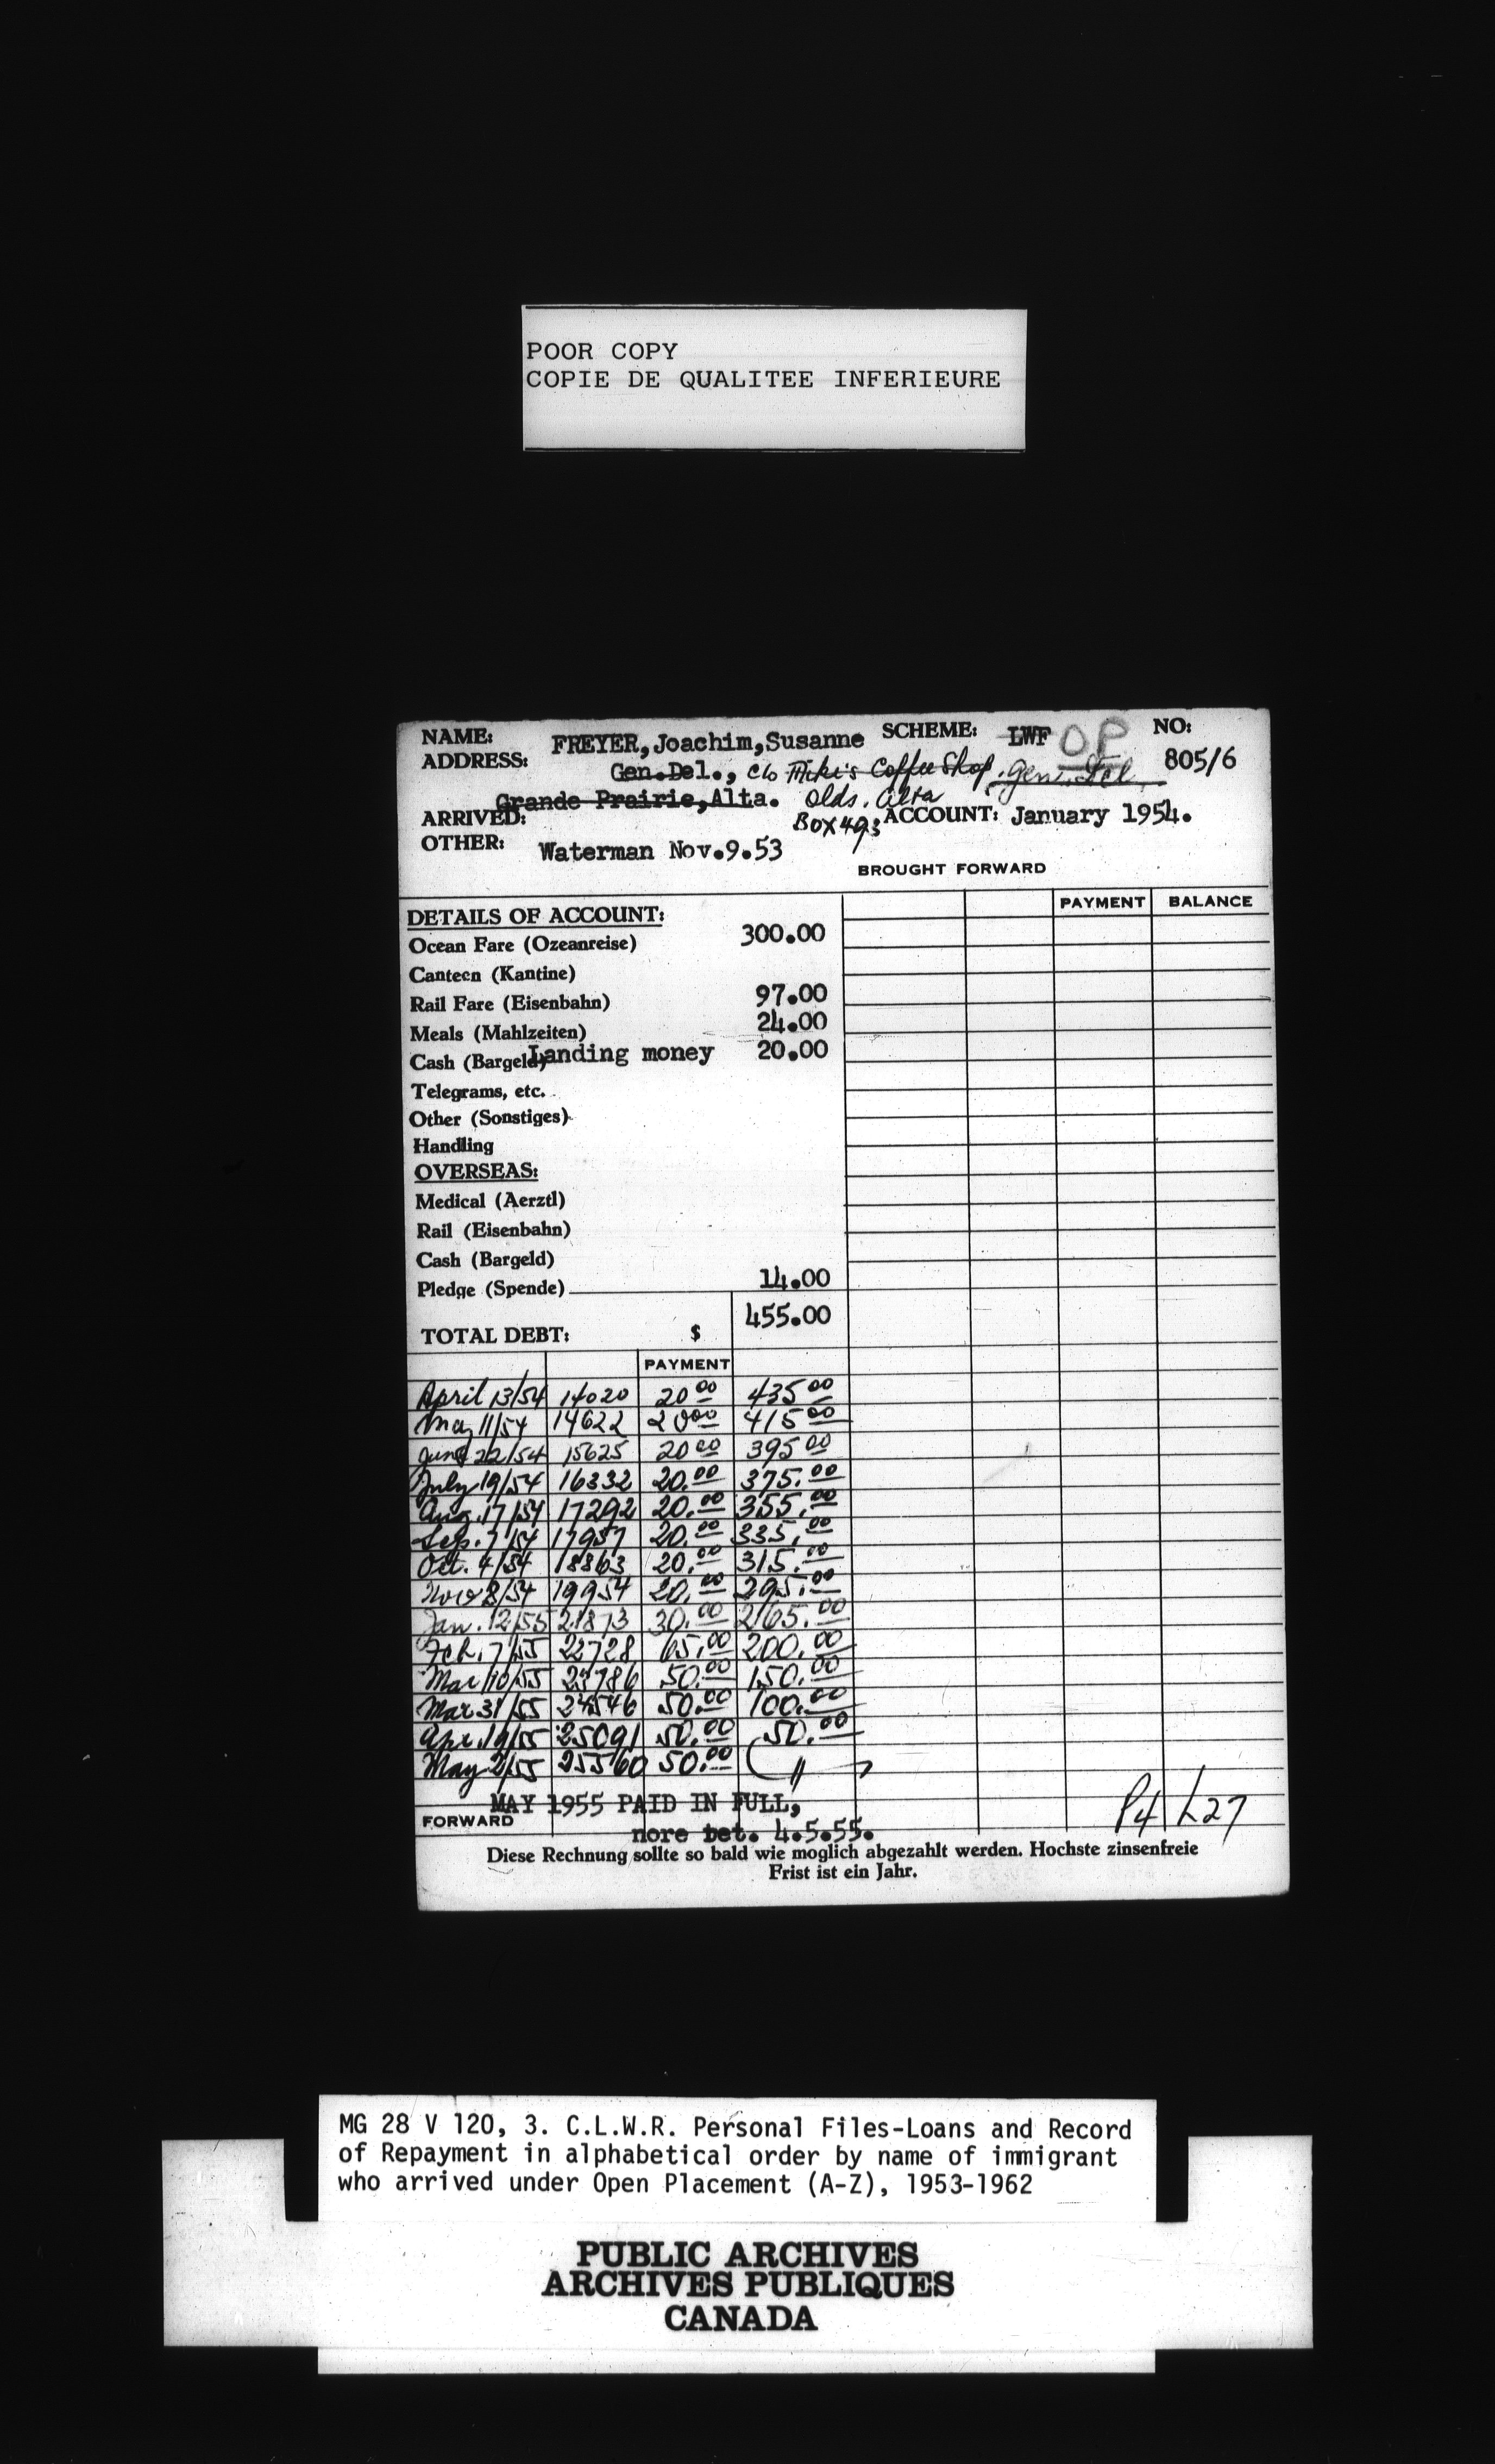 POOR COPY
COPIE DE QUALITEE INFERIEURE
NAME: FREYER, Joachim, Susanne SCHEME: LWF OP NO: 805/6
ADDRESS: Gen.Del., c/o Miki's Coffee Shop, Gen. Del.
Grande Prairie, Alta. Olds. Alta
ARRIVED: Box 493 ACCOUNT: January 1954.
OTHER: Waterman Nov.9.53
BROUGHT FORWARD
DETAILS OF ACCOUNT: PAYMENT BALANCE
Ocean Fare (Ozeanreise) 300.00
Canteen (Kantine)
Rail Fare (Eisenbahn) 97.00
Meals (Mahlzeiten) 24.00
Cash (Bargeld) Landing money 20.00
Telegrams, etc.
Other (Sonstiges)
Handling
OVERSEAS:
Medical (Aerztl)
Rail (Eisenbahn)
Cash (Bargeld)
Pledge (Spende) 14.00
TOTAL DEBT: $ 455.00
PAYMENT
April 13/54 14020 20 00 435 00
May 11/54 14622 20 00 415 00
June 22/54 15625 20 00 395 00
July 19/54 16332 20.00 375.00
Aug. 17/54 17292 20.00 355.00
Sep. 7/54 17957 20.00 335.00
Oct. 4/54 18863 20.00 315.00
Nov 8/54 19954 20.00 295.00
Jan. 12/55 21873 30.00 265.00
Feb. 7/55 22728 65.00 200.00
Mar 10/55 23786 50.00 150.00
Mar 31/55 24546 50.00 100.00
Apr. 19/55 25091 50.00 50.00
May 2/55 25560 50.00 "
MAY 1955 PAID IN FULL,
FORWARD nore bet. 4.5.55. P4 L27
Diese Rechnung sollte so bald wie moglich abgezahlt werden. Hochste zinsenfreie
Frist ist ein Jahr.
MG 28 V 120, 3. C.L.W.R. Personal Files-Loans and Record
of Repayment in alphabetical order by name of immigrant
who arrived under Open Placement (A-Z), 1953-1962
PUBLIC ARCHIVES
ARCHIVES PUBLIQUES
CANADA